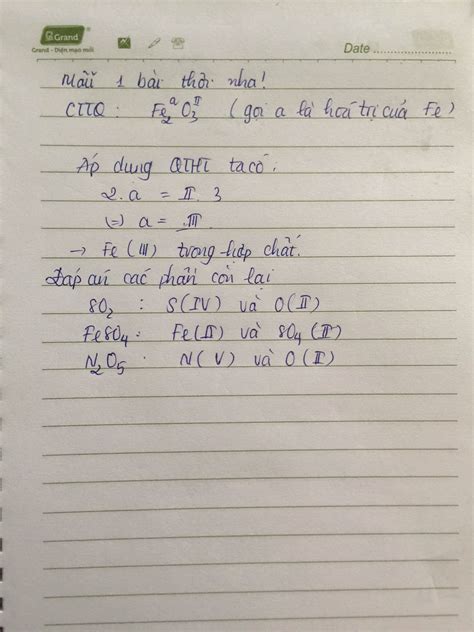 Grand®
Grand - Diện mạo mới
Date
Mẫu 1 bài thôi nha!
CTTQ : Fe₂ᵃO₃ᴵᴵ (gọi a là hoá trị của Fe)
Áp dụng QTHT ta có:
2.a = II.3
(=) a = III
→ Fe (III) trong hợp chất.
Đáp án các phần còn lại
SO₂ : S(IV) và O(II)
FeSO₄ : Fe(II) và SO₄(II)
N₂O₅ : N(V) và O(II)